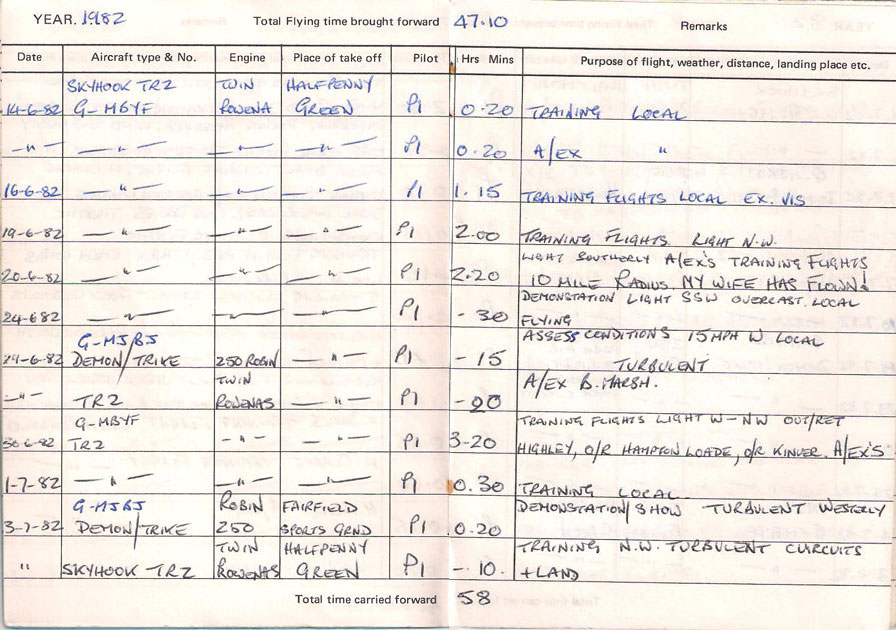 YEAR. 1982 Total Flying time brought forward 47.10 Remarks
Date Aircraft type & No. Engine Place of take off Pilot Hrs Mins Purpose of flight, weather, distance, landing place etc.
SKYHOOK TR2 TWIN HALFPENNY
14-6-82 G-MBYF ROWENA GREEN P1 0.20 TRAINING LOCAL
—"— —"— —"— —"— P1 0.20 A/EX "
16-6-82 —"— —"— —"— P1 1.15 TRAINING FLIGHTS LOCAL EX. VIS
19-6-82 —"— —"— —"— P1 2.00 TRAINING FLIGHTS. LIGHT N.W.
LIGHT SOUTHERLY A/EX'S TRAINING FLIGHTS
20-6-82 —"— —"— —"— P1 2.20 10 MILE RADIUS. MY WIFE HAS FLOWN!
DEMONSTATION LIGHT SSW OVERCAST. LOCAL
24-682 —"— —"— —"— P1 - 30 FLYING
G-MJBJ ASSESS CONDITIONS 15MPH W LOCAL
29-6-82 DEMON/TRIKE 250 ROBIN —"— P1 - 15 TURBULENT
TWIN A/EX B. MARSH.
—"— TR2 ROWENAS —"— P1 - 20
G-MBYF TRAINING FLIGHTS LIGHT W-NW OUT/RET
30-6-82 TR2 —"— —"— P1 3-20 HIGHLEY, O/R HAMPTON LOADE, O/R KINVER. A/EX'S
1-7-82 —"— —"— —"— P1 0.30 TRAINING LOCAL.
G-MJBJ ROBIN FAIRFIELD DEMONSTATION/SHOW TURBULENT WESTERLY
3-7-82 DEMON/TRIKE 250 SPORTS GRND P1 0.20
TWIN HALFPENNY TRAINING N.W. TURBULENT CURCUITS
" SKYHOOK TR2 ROWENAS GREEN P1 -.10. +LAND
Total time carried forward 58